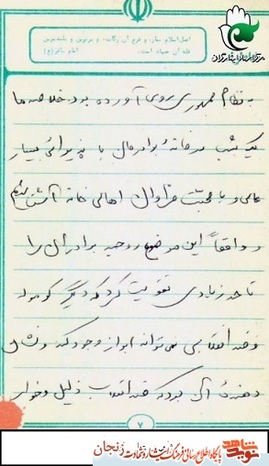 اصل اسلام نماز، و فرع آن زکات، و برترین و بلندترین
قله آن جهاد است. امام باقر(ع)
به نظام جمهوری روی آورده بود خلاصه ما
یک شب در خانهٔ برادرمان با پذیرائی بسیار
عالی و با محبت فراوان اهالی خانه آشنا شدیم
و واقعاً این موضوع روحیه برادران را
تا حد زیادی تقویت کرد که دیگر گومولهٔ
وضد انقلابی نمی‌تواند ابراز وجود کند و نشان
دهندهٔ آن بود که ضد انقلاب ذلیل و خوار
۷
نوید شاهد
پایگاه اطلاع رسانی فرهنگ ایثار و شهادت زنجان